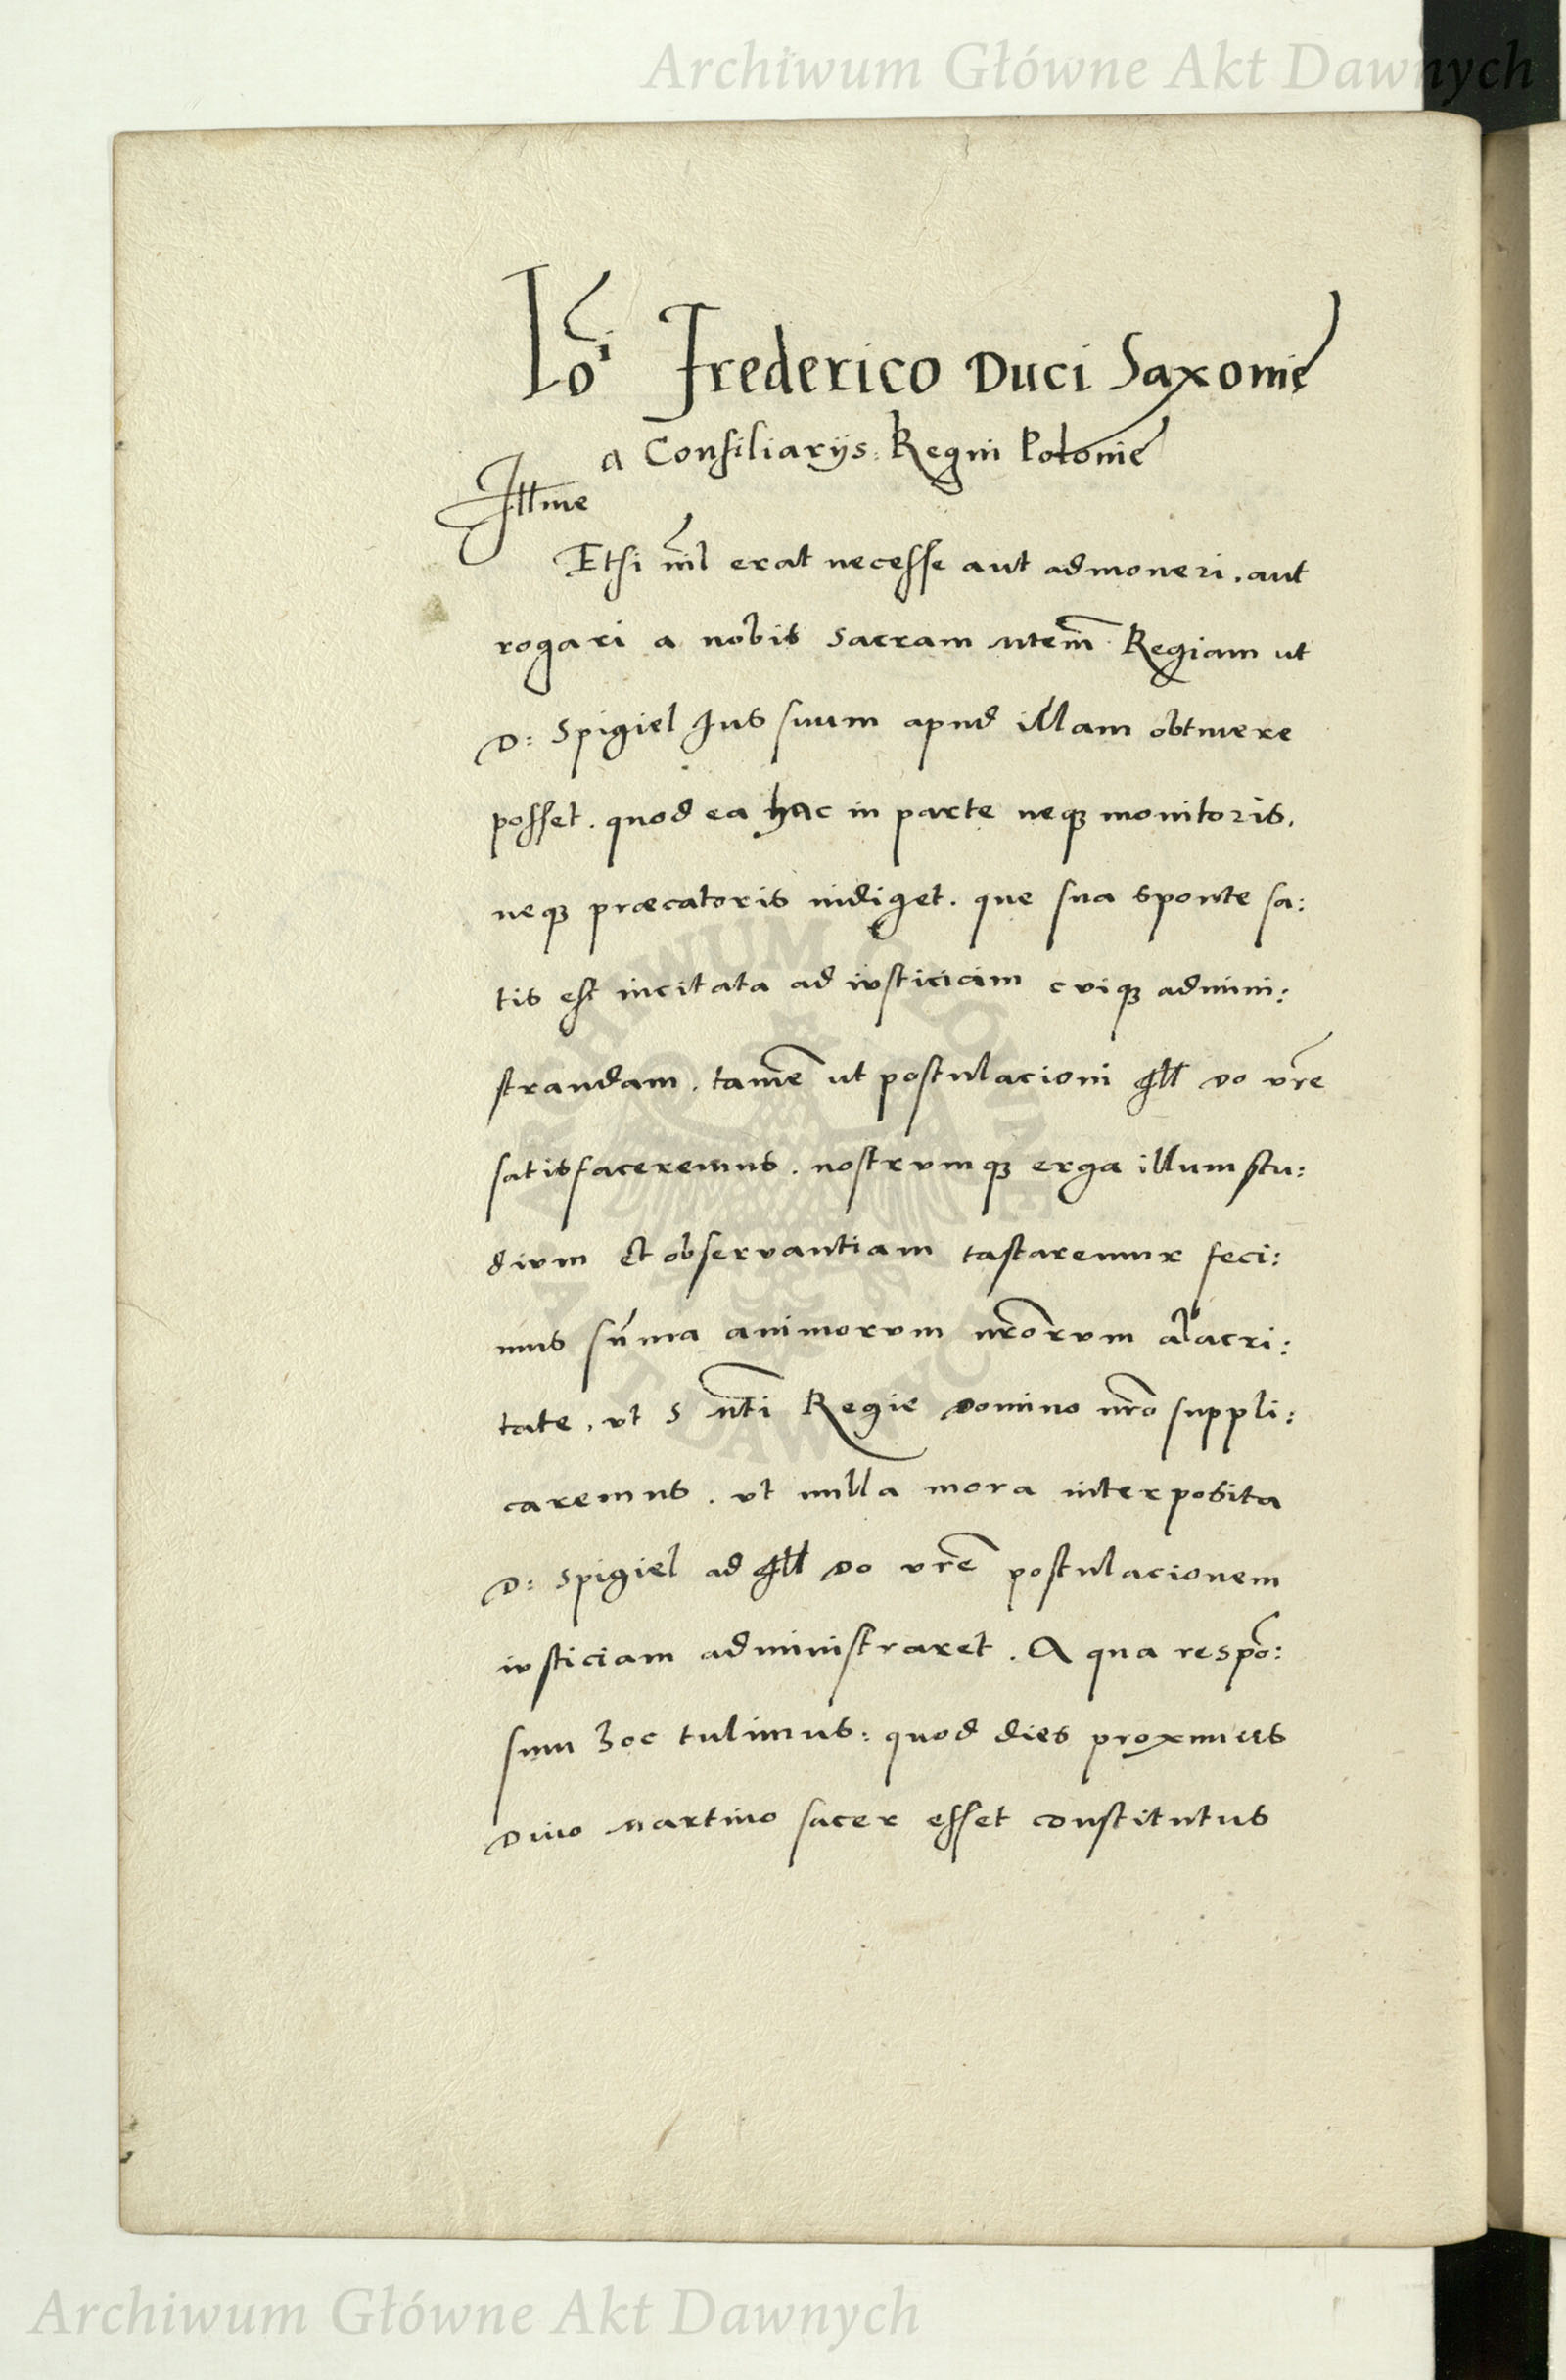 Archiwum Główne Akt Dawnych
Ioi Frederico Duci Saxonie
a Consiliarijs Regni Polonie
Illme
Etsi nil erat necesse aut admoneri. aut
rogari a nobis sacram Mtem Regiam ut
D: Spigiel Jus suum apud illam obtinere
posset. quod ea hac in parte neqz monitoris.
neqz præcatoris indiget. que sua sponte sa:
tis est incitata ad iusticiam cuiqz admini:
strandam. tame ut postulacioni Ill Do vre
satisfaceremus. nostrumqz erga illum stu:
dium Et observantiam tastaremur feci:
mus suma animorum nrorum alacri:
tate. vt S Mti Regie Domino nro suppli:
caremus. vt nulla mora interposita
D: Spigiel ad Ill Do vre postulacionem
iusticiam administraret. A qua respo:
sum hoc tulimus: quod dies proximus
Divo Martino sacer esset constitutus
ARCHIWUM GŁÓWNE
AKT DAWNYCH
Archiwum Główne Akt Dawnych